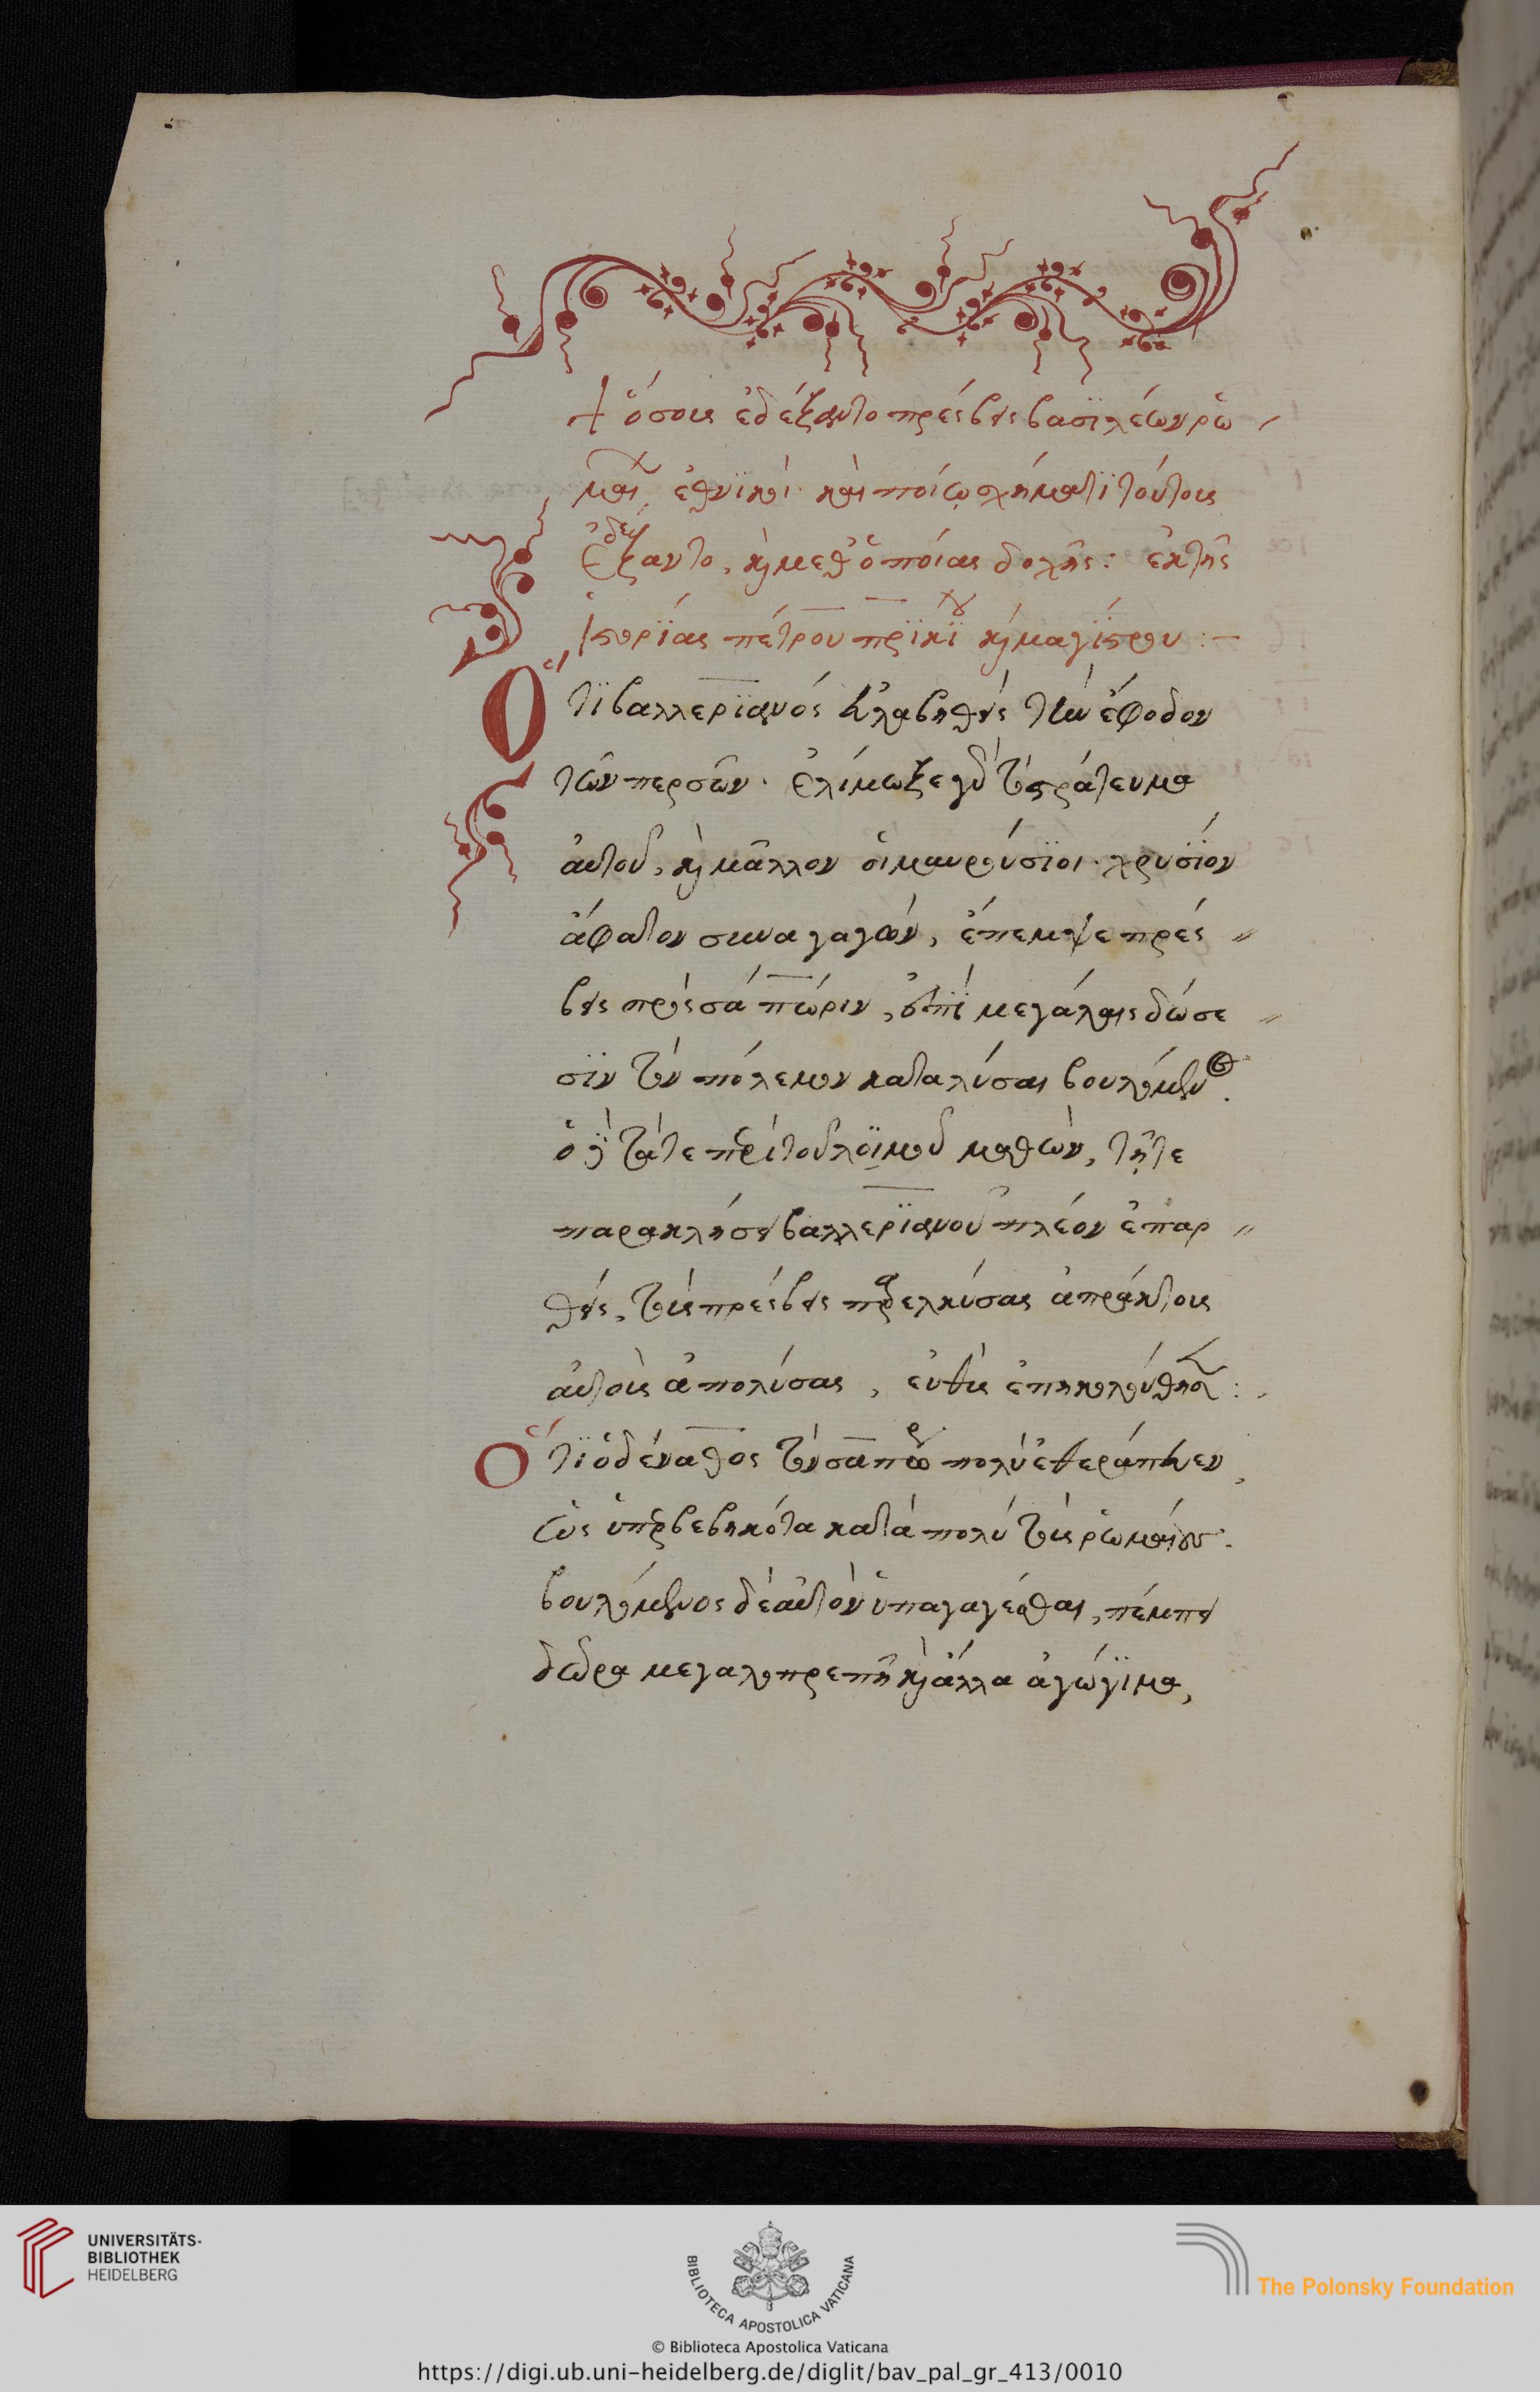 ὅσους ἐδέξαντο πρέσβεις βασιλέων ῥω
μαι ἐθνικοὶ καὶ ποίῳ σχήματι τούτους
ἐδέξαντο, καὶ μεθ' ὁποίας δοχῆς: ἐκ τῆς
ἱστορίας πέτρου πρικϊ καὶ μαγίστρου :–
Ὅτι βαλλεριανός εὐλαβηθεὶς τὴν ἔφοδον
τῶν περσῶν. ἐλίμωξε γὰρ τὸ στράτευμα
αὐτοῦ, καὶ μᾶλλον οἱ μαυρούσιοι. χρυσίον
ἄφατον συναγαγὼν, ἔπεμψε πρέσ
βεις πρὸς σάπωριν, ἐπὶ μεγάλαις δώσε
σιν τὸν πόλεμον καταλύσαι βουλόμενος.
ὁ δὲ τά τε περὶ τοῦ λοιμοῦ μαθὼν, τῇ τε
παρακλήσει βαλλεριανοῦ πλέον ἐπαρ
θεὶς, τοὺς πρέσβεις παρελκύσας ἀπράκτους
αὐτοὺς ἀπολύσας, εὐθὺς ἐπηκολούθησ:
Ὅτι ὀδέναθος τὸν σαπώρ πολὺ ἐθεράπευεν,
ὡς ὑπερβεβηκότα κατὰ πολὺ τοὺς ῥωμαίους.
βουλόμενος δὲ αὐτὸν ὑπαγαγέσθαι, πέμπει
δῶρα μεγαλοπρεπῆ καὶ ἄλλα ἀγώγιμα,
UNIVERSITÄTS-
BIBLIOTHEK
HEIDELBERG
BIBLIOTECA APOSTOLICA VATICANA
The Polonsky Foundation
© Biblioteca Apostolica Vaticana
https://digi.ub.uni-heidelberg.de/diglit/bav_pal_gr_413/0010